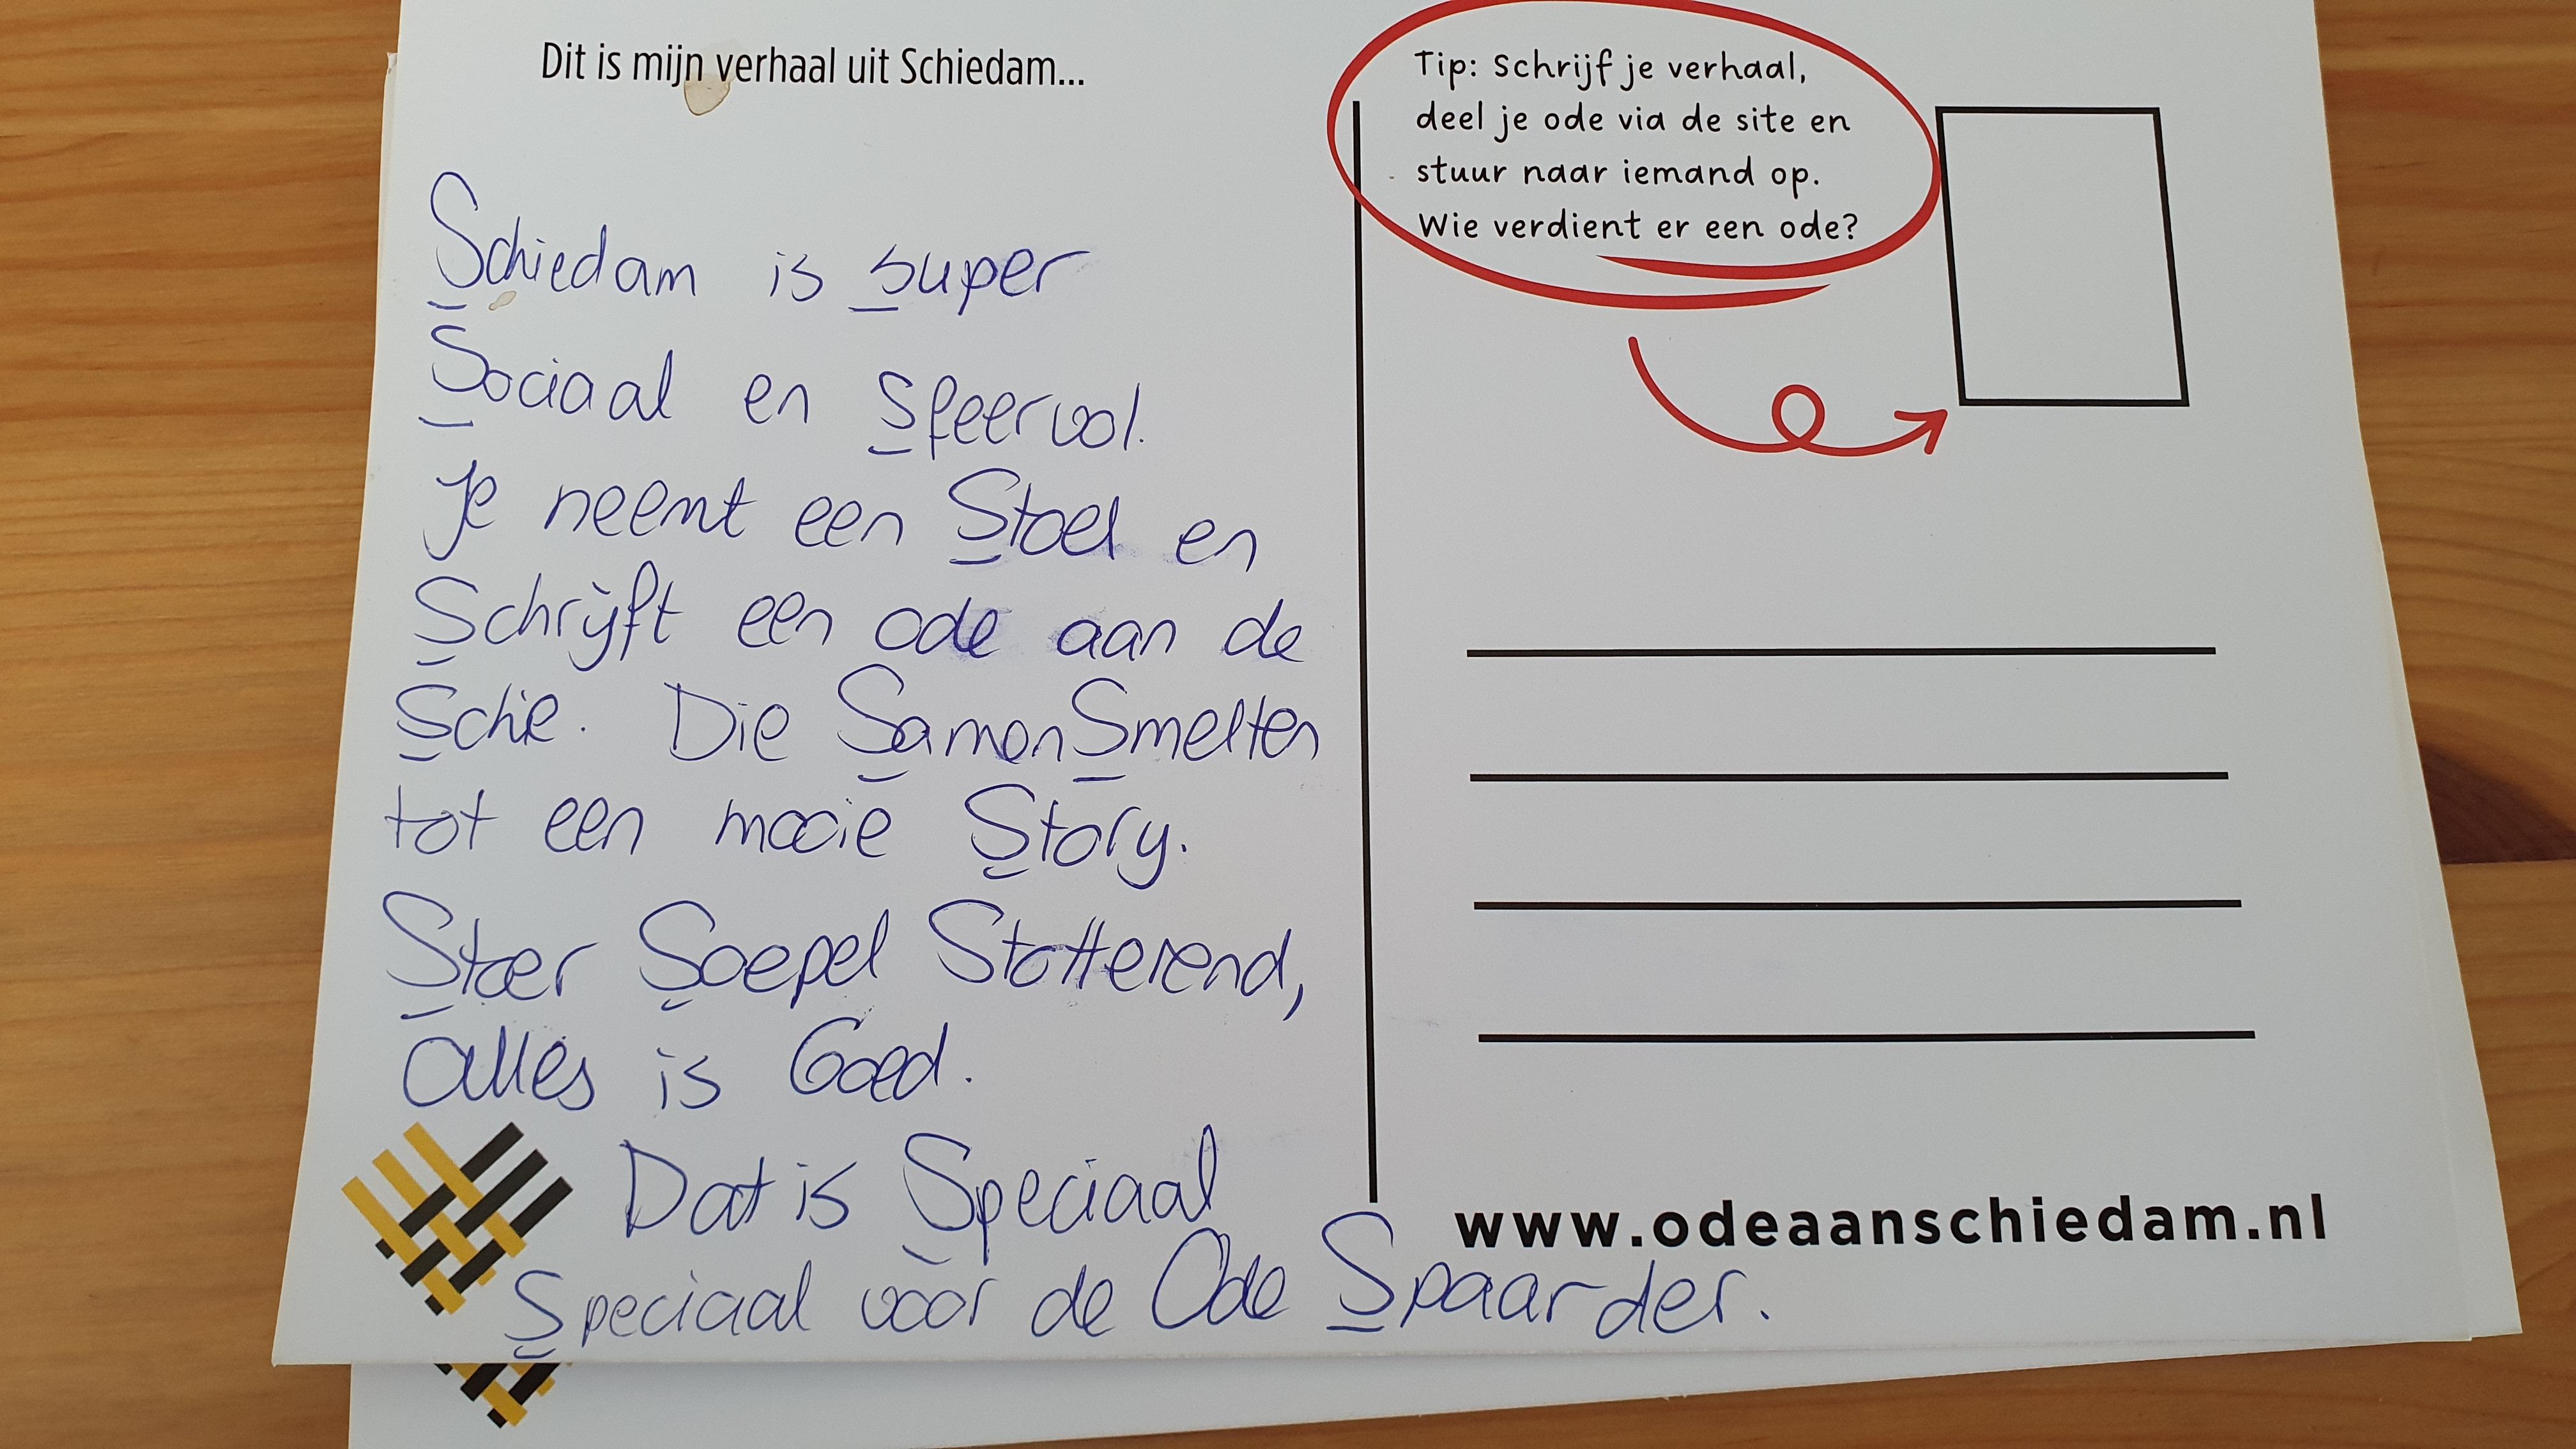 Dit is mijn verhaal uit Schiedam...
Schiedam is super
Sociaal en Sfeervol.
Je neemt een Stoel en
Schrijft een ode aan de
Schie. Die SamenSmelten
tot een mooie Story.
Stoer Soepel Stotterend,
alles is Goed.
Dat is Speciaal
Speciaal voor de Ode Spaarder.
Tip: Schrijf je verhaal,
deel je ode via de site en
stuur naar iemand op.
Wie verdient er een ode?
www.odeaanschiedam.nl